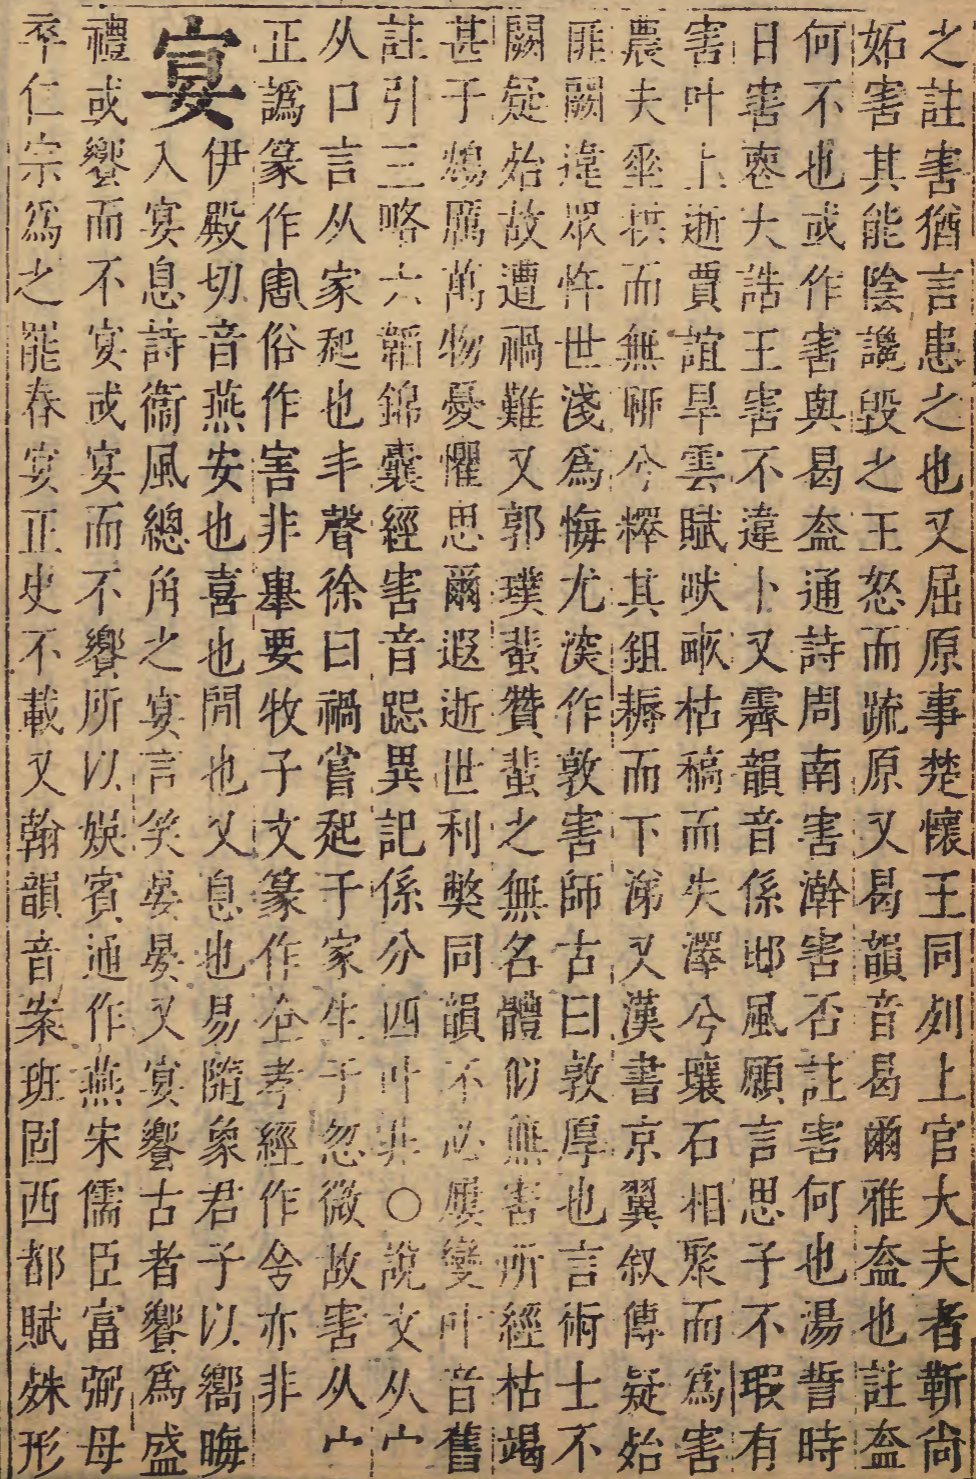 之註害猶言患之也又屈原事楚懷王同列上官大夫者靳尙
妬害其能陰讒毀之王怒而疏原又曷韻音曷爾雅盍也註盍
何不也或作害與曷盍通詩周南害澣害否註害何也湯誓時
日害喪大誥王害不違卜又霽韻音係邶風願言思子不瑕有
害叶上逝賈誼旱雲賦畎畝枯槁而失澤兮壤石相聚而爲害
農夫垂拱而無聊兮釋其鉏耨而下涕又漢書京翼叙傳疑殆
匪闕違眾忤世淺爲悔尤深作敦害師古曰敦厚也言術士不
闕疑殆故遭禍難又郭璞蜚贊蜚之無名體似無害所經枯竭
甚于鴆厲萬物憂懼思爾遐逝世利獘同韻不必屢變叶音舊
註引三略六韜錦囊經害音跽異記係分四叶非〇說文从宀
从口言从家起也丰聲徐曰禍嘗起于家生于忽微故害从宀
正譌篆作周俗作害非舉要牧子文篆作㐰孝經作舍亦非
宴伊殿切音燕安也喜也閒也又息也易隨象君子以嚮晦
入宴息詩衞風總角之宴言笑晏晏又宴饗古者饗爲盛
禮或饗而不宴或宴而不饗所以娛賓通作燕宋儒臣富弼母
卒仁宗爲之罷春宴正史不載又翰韻音案班固西都賦姝形